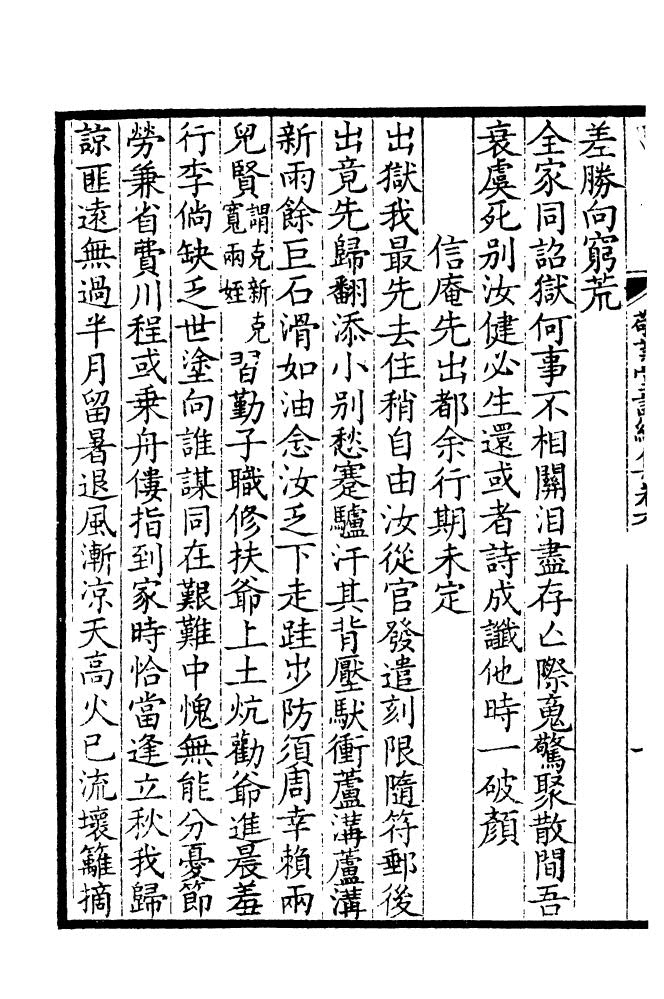 差勝向窮荒
全家同詔獄何事不相關淚盡存亡際䰟驚聚散間吾
衰虞死别汝健必生還或者詩成讖他時一破顏
信庵先出都余行期未定
出獄我最先去住稍自由汝從官發遣刻限隨符郵後
出竟先歸翻添小别愁蹇驢汗其背壓馱衝蘆溝蘆溝
新雨餘巨石滑如油念汝乏下走跬步防須周幸賴兩
兒賢謂克新克寬兩姪習勤子職修扶爺上土炕勸爺進晨羞
行李倘缺乏世塗向誰謀同在艱難中愧無能分憂節
勞兼省費川程或乗舟僂指到家時恰當逢立秋我歸
諒匪遠無過半月留暑退風漸凉天高火已流壞籬摘
敬業堂詩續集卷